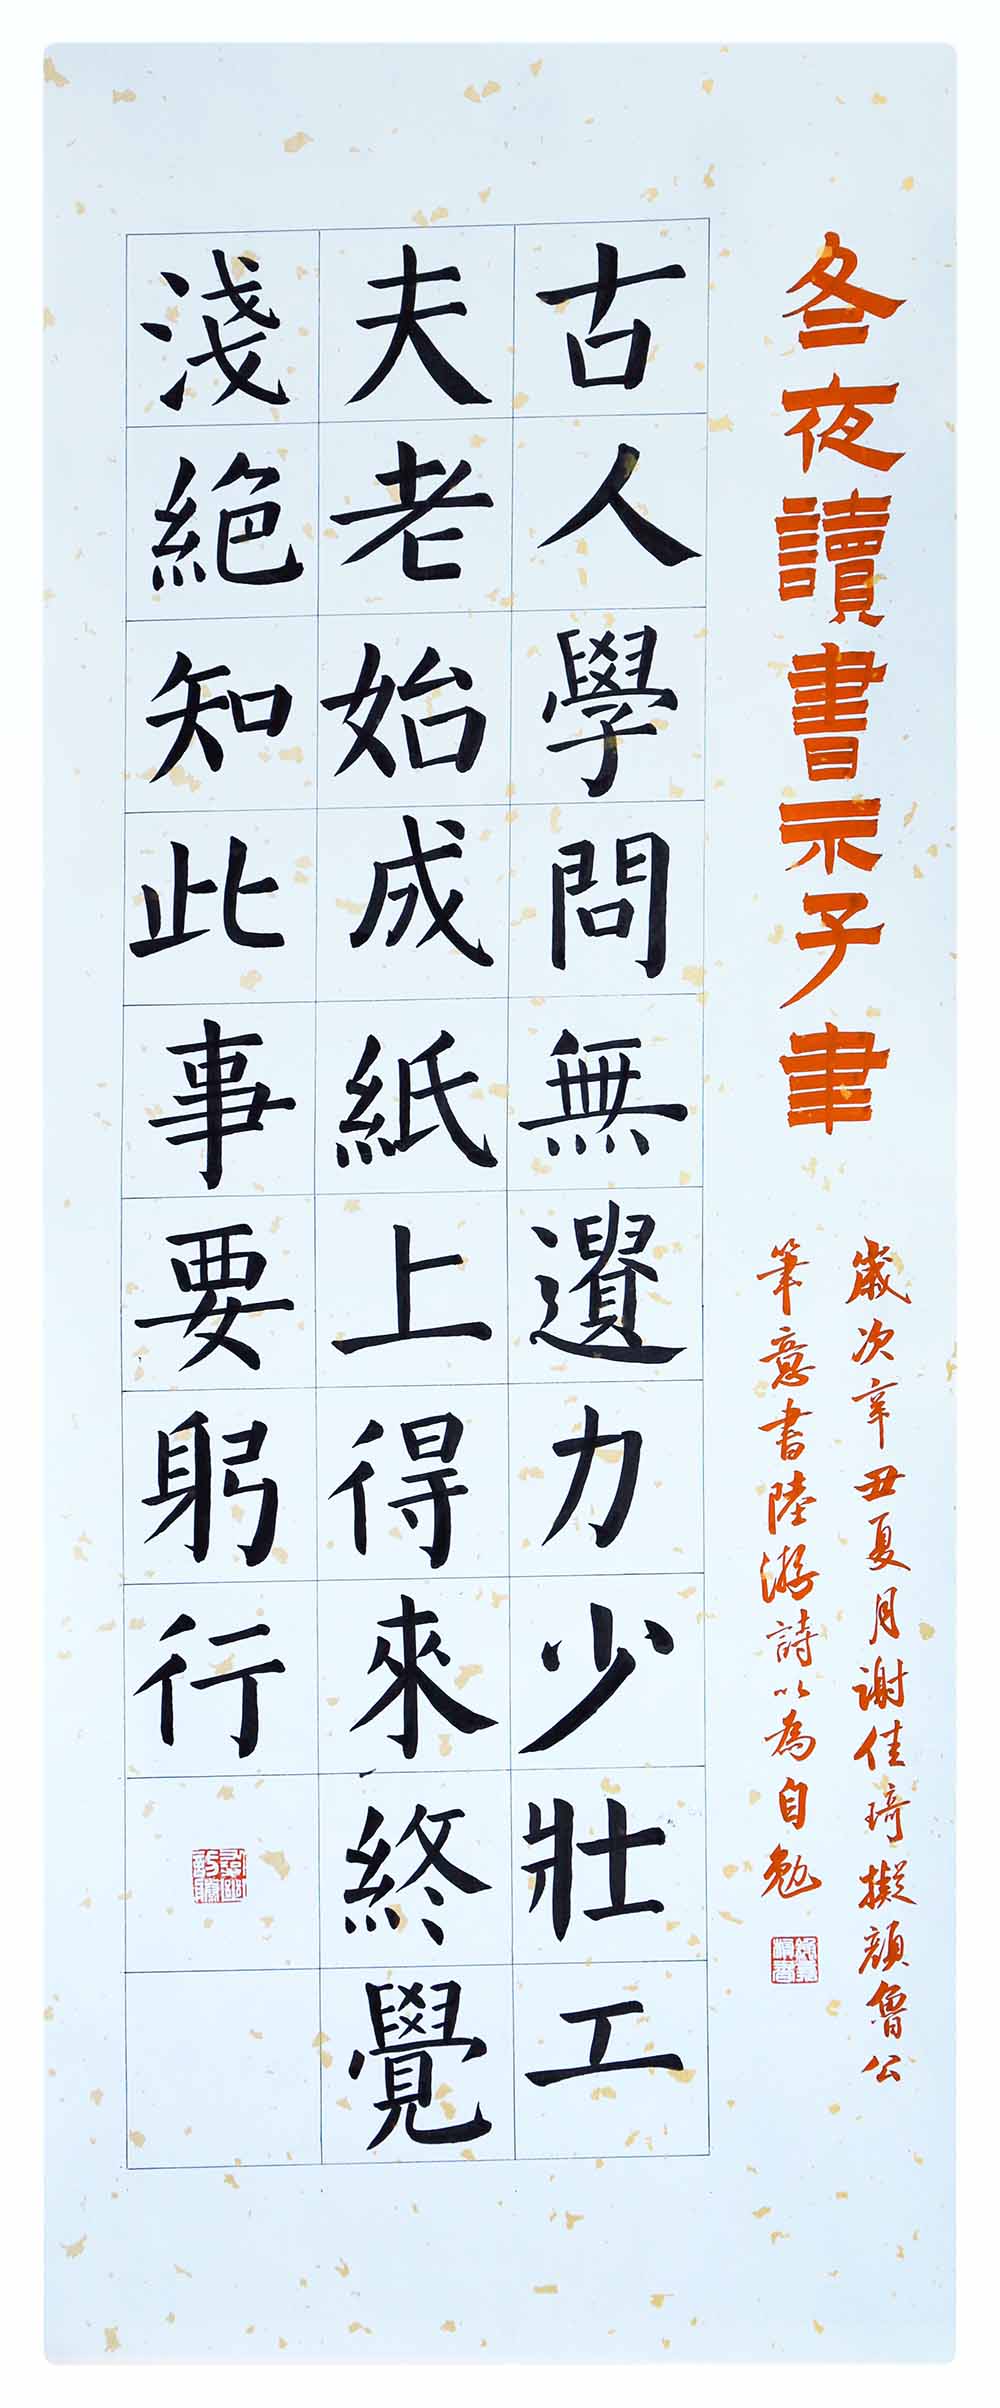 冬夜讀書示子聿
歲次辛丑夏月謝佳琦擬顏魯公
筆意書陸游詩以為自勉
古人學問無遺力少壯工
夫老始成紙上得來終覺
淺絕知此事要躬行